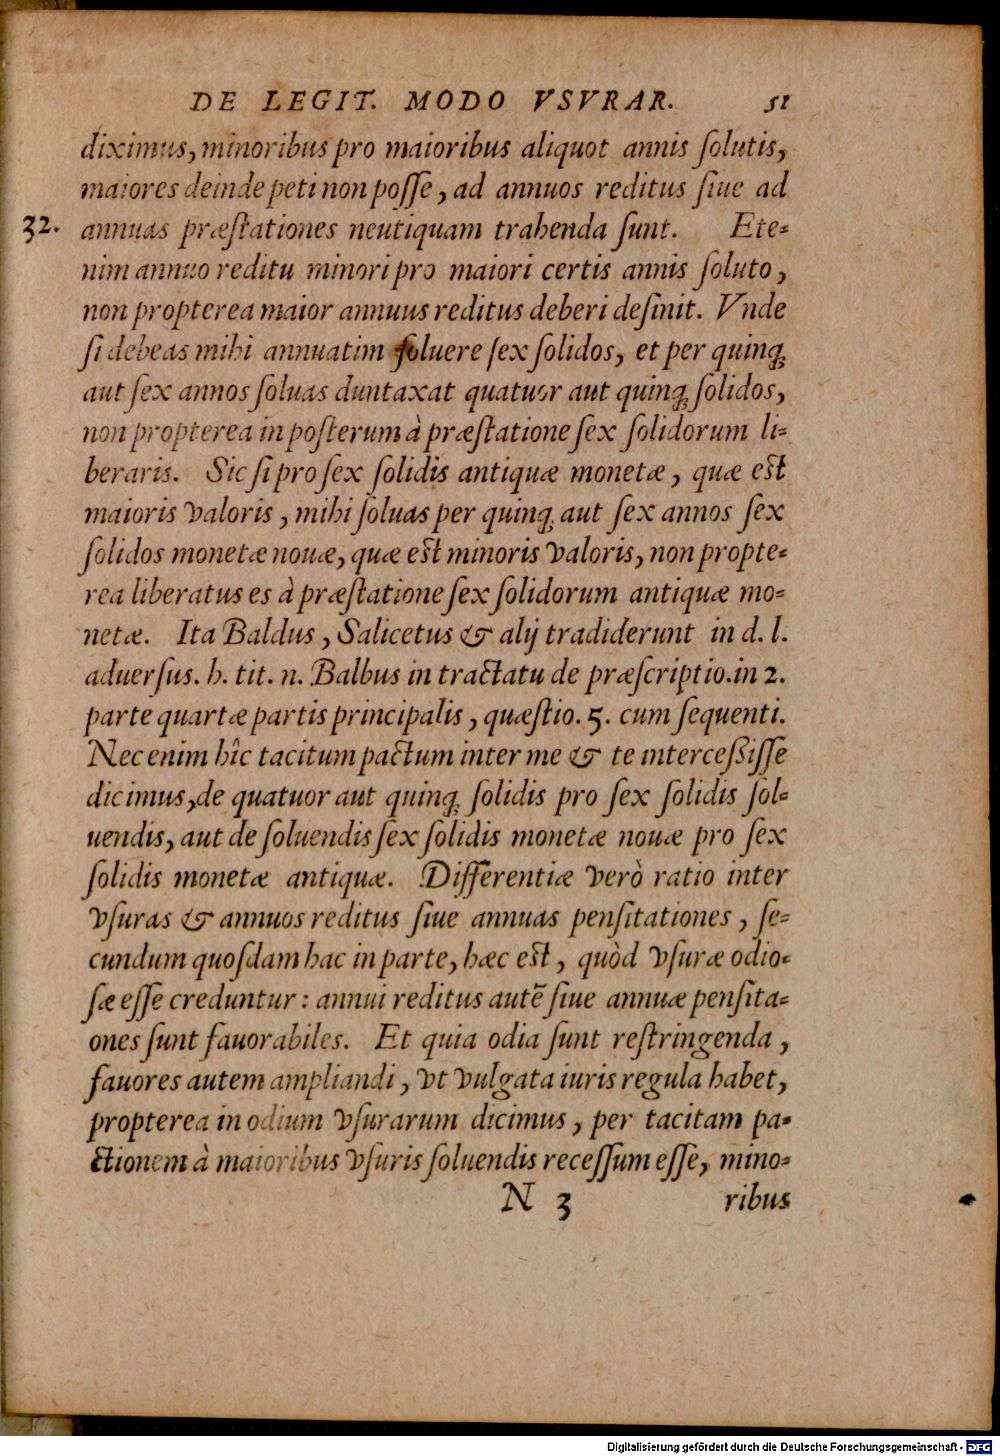 DE LEGIT. MODO VSVRAR. 51
diximus, minoribus pro maioribus aliquot annis ſolutis,
maiores deinde peti non poſſe, ad annuos reditus ſiue ad
32. annuas præſtationes neutiquam trahenda ſunt. Ete-
nim annuo reditu minori pro maiori certis annis ſoluto,
non propterea maior annuus reditus deberi deſinit. Vnde
ſi debeas mihi annuatim ſoluere ſex ſolidos, et per quinq;
aut ſex annos ſoluas duntaxat quatuor aut quinq; ſolidos,
non propterea in poſterum à præſtatione ſex ſolidorum li-
beraris. Sic ſi pro ſex ſolidis antiquæ monetæ, quæ eſt
maioris valoris, mihi ſoluas per quinq; aut ſex annos ſex
ſolidos monetæ nouæ, quæ eſt minoris valoris, non propte-
rea liberatus es à præſtatione ſex ſolidorum antiquæ mo-
netæ. Ita Baldus, Salicetus & alij tradiderunt in d. l.
aduerſus. h. tit. n. Balbus in tractatu de præſcriptio. in 2.
parte quartæ partis principalis, quæſtio. 5. cum ſequenti.
Nec enim hîc tacitum pactum inter me & te interceßiſſe
dicimus, de quatuor aut quinq; ſolidis pro ſex ſolidis ſol-
uendis, aut de ſoluendis ſex ſolidis monetæ nouæ pro ſex
ſolidis monetæ antiquæ. Differentiæ verò ratio inter
vſuras & annuos reditus ſiue annuas penſitationes, ſe-
cundum quoſdam hac in parte, hæc eſt, quòd vſuræ odio-
ſæ eſſe creduntur: annui reditus autē ſiue annuæ penſita-
ones ſunt fauorabiles. Et quia odia ſunt reſtringenda,
fauores autem ampliandi, vt vulgata iuris regula habet,
propterea in odium vſurarum dicimus, per tacitam pa-
ctionem à maioribus vſuris ſoluendis receſſum eſſe, mino-
N 3 ribus
Digitalisierung gefördert durch die Deutsche Forschungsgemeinschaft - DFG